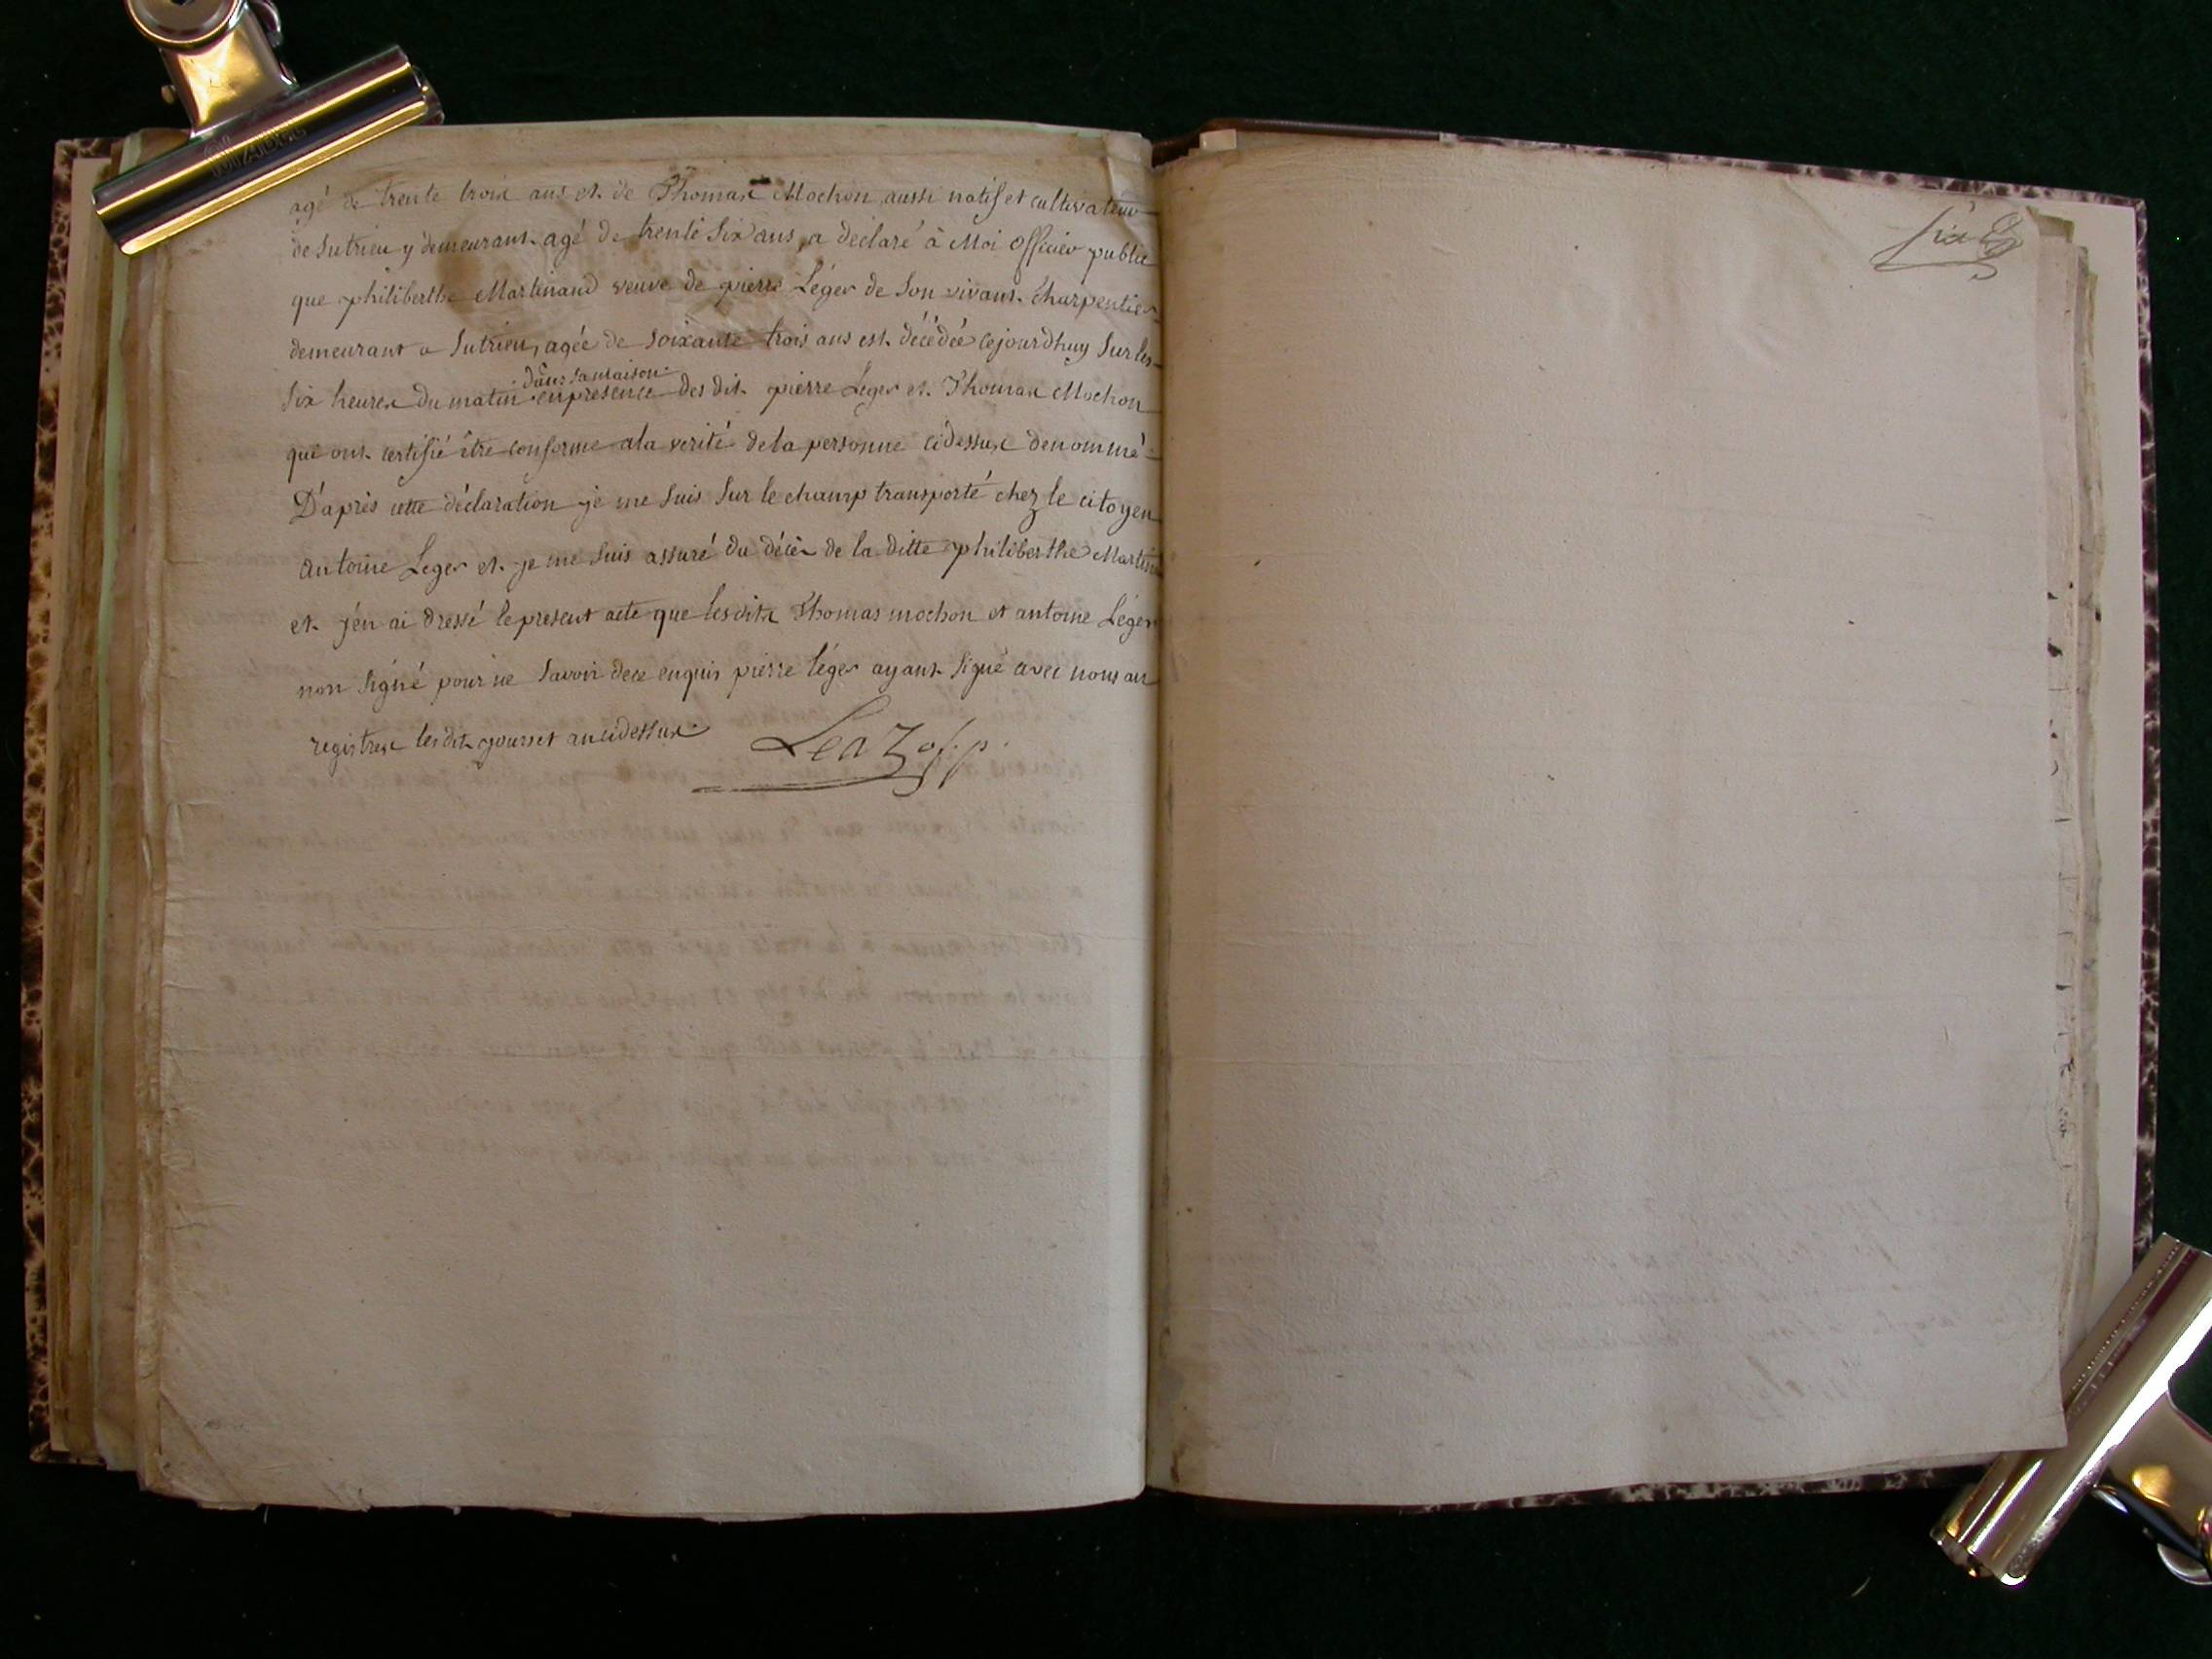 agé de trente trois ans et de Thomas Mochon aussi natif et cultivateur
de Sutrieu y demeurant agé de trente Six ans, a déclaré à Moi Officier public
que philiberthe Martinand veuve de pierre Léger de Son vivant Charpentier
demeurant a Sutrieu, agée de Soixante trois ans est décédée cejourdhuy Sur les
dans sa maison
Six heures du matin en présence des dit pierre Léger et Thomas Mochon
qui ont certifié être conforme ala verité dela personne cidessus denommé
D'après cette déclaration je me Suis Sur le champ transporté chez le citoyen
antoine Leger et je me Suis assuré du décès de la ditte philiberthe Martin
et j'én ai dressé lepresent acte que lesdits Thomas mochon et antoine Léger
non Signé pour ne Savoir dece enquis pierre léger ayant Signé avec nous au
registres lesdits jours et an cidessus
Leaz of. p.